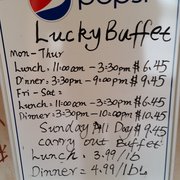 pepsi
Lucky Buffet
Mon-Thur
Lunch: 11:00am - 3:30pm $6.45
Dinner: 3:30pm - 9:00pm $9.45
Fri-Sat:
Lunch: 11:00am - 3:30pm $6.45
Dinner: 3:30pm - 10:00pm $10.45
Sunday All Day $9.45
Carry out Buffet
Lunch: 3.99/lb
Dinner: 4.99/lb